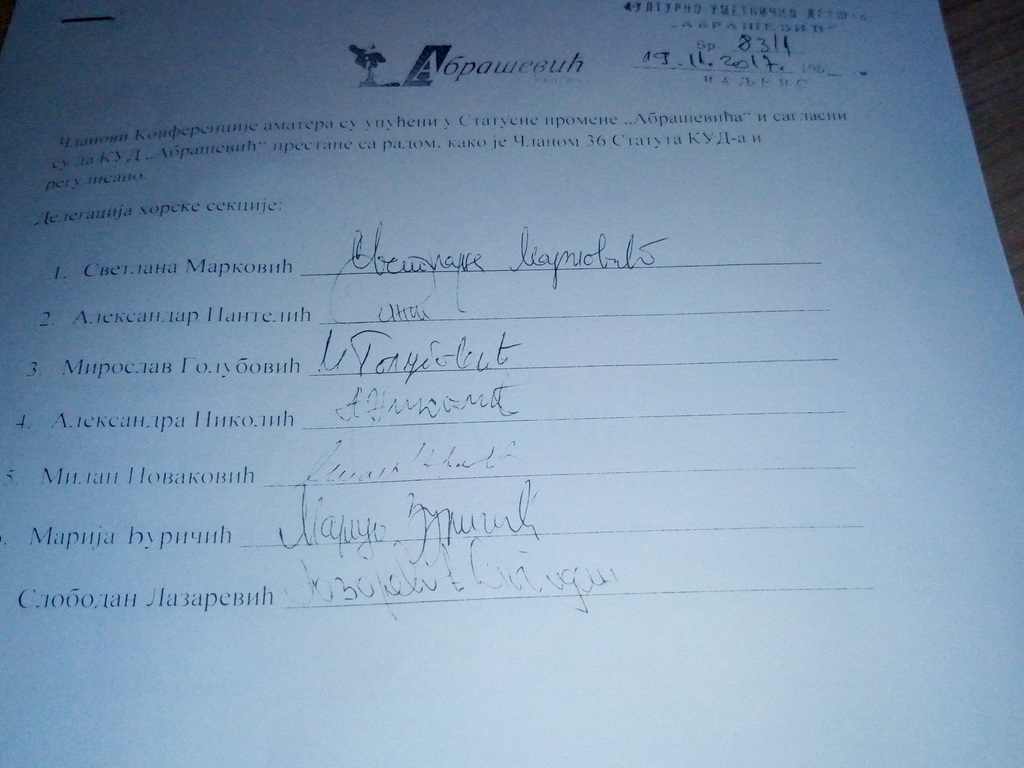 КУЛТУРНО УМЕТНИЧКО ДРУШТВО
„АБРАШЕВИЋ"
Бр 83/1
19.11.2017.
ВАЉЕВО
Абрашевић
Чланови Конференције аматера су упућени у Статусне промене „Абрашевића“ и сагласни
су да КУД „Абрашевић“ престане са радом, како је Чланом 36 Статута КУД-а и
регулисано.
Делегација хорске секције:
1. Светлана Марковић Светлана Марковић
2. Александар Пантелић
3. Мирослав Голубовић М Голубовић
4. Александра Николић А Николић
5. Милан Новаковић
Марија Ђуричић Марија Ђуричић
Слободан Лазаревић Лазаревић Слободан